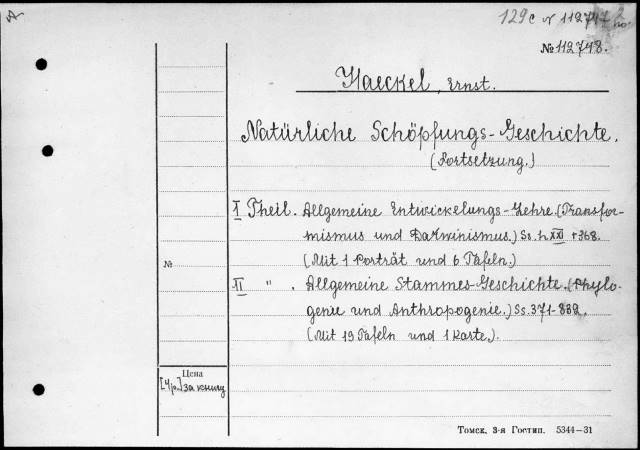 129c N 112747
№112748.
Haeckel, Ernst.
Natürliche Schöpfungs-Geschichte.
(Fortsetzung.)
I Theil. Allgemeine Entwickelungs-Lehre. (Transfor-
mismus und Darwinismus.) Ss. L XXI + 368.
(Mit 1 Porträt und 6 Tafeln.)
№
II " . Allgemeine Stammes-Geschichte. (Phylo-
genie und Anthropogenie.) Ss. 371-832.
(Mit 19 Tafeln und 1 Karte.).
Цена
[4р.] за книгу
Томск. 3-я Гостип. 5344—31